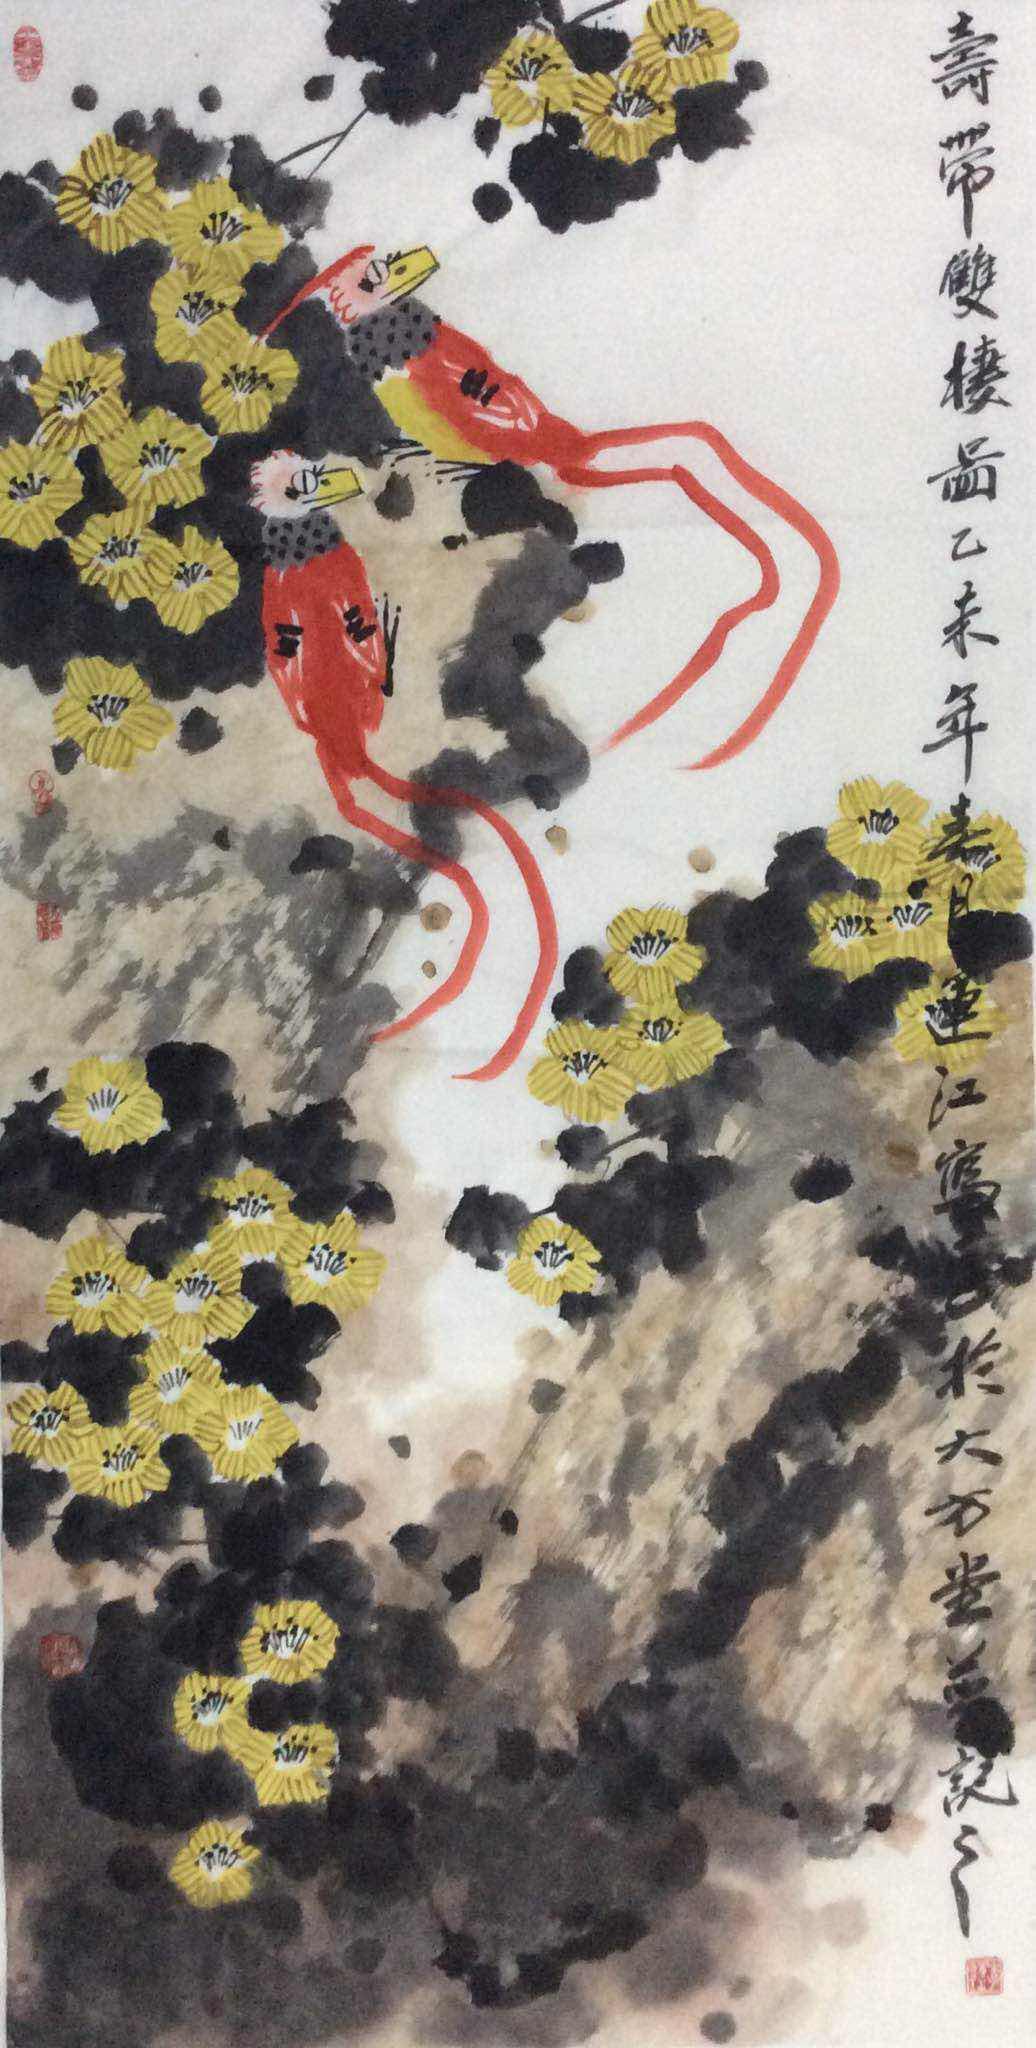 壽帶雙棲圖乙未年春月蓮江寫於大方堂並記之